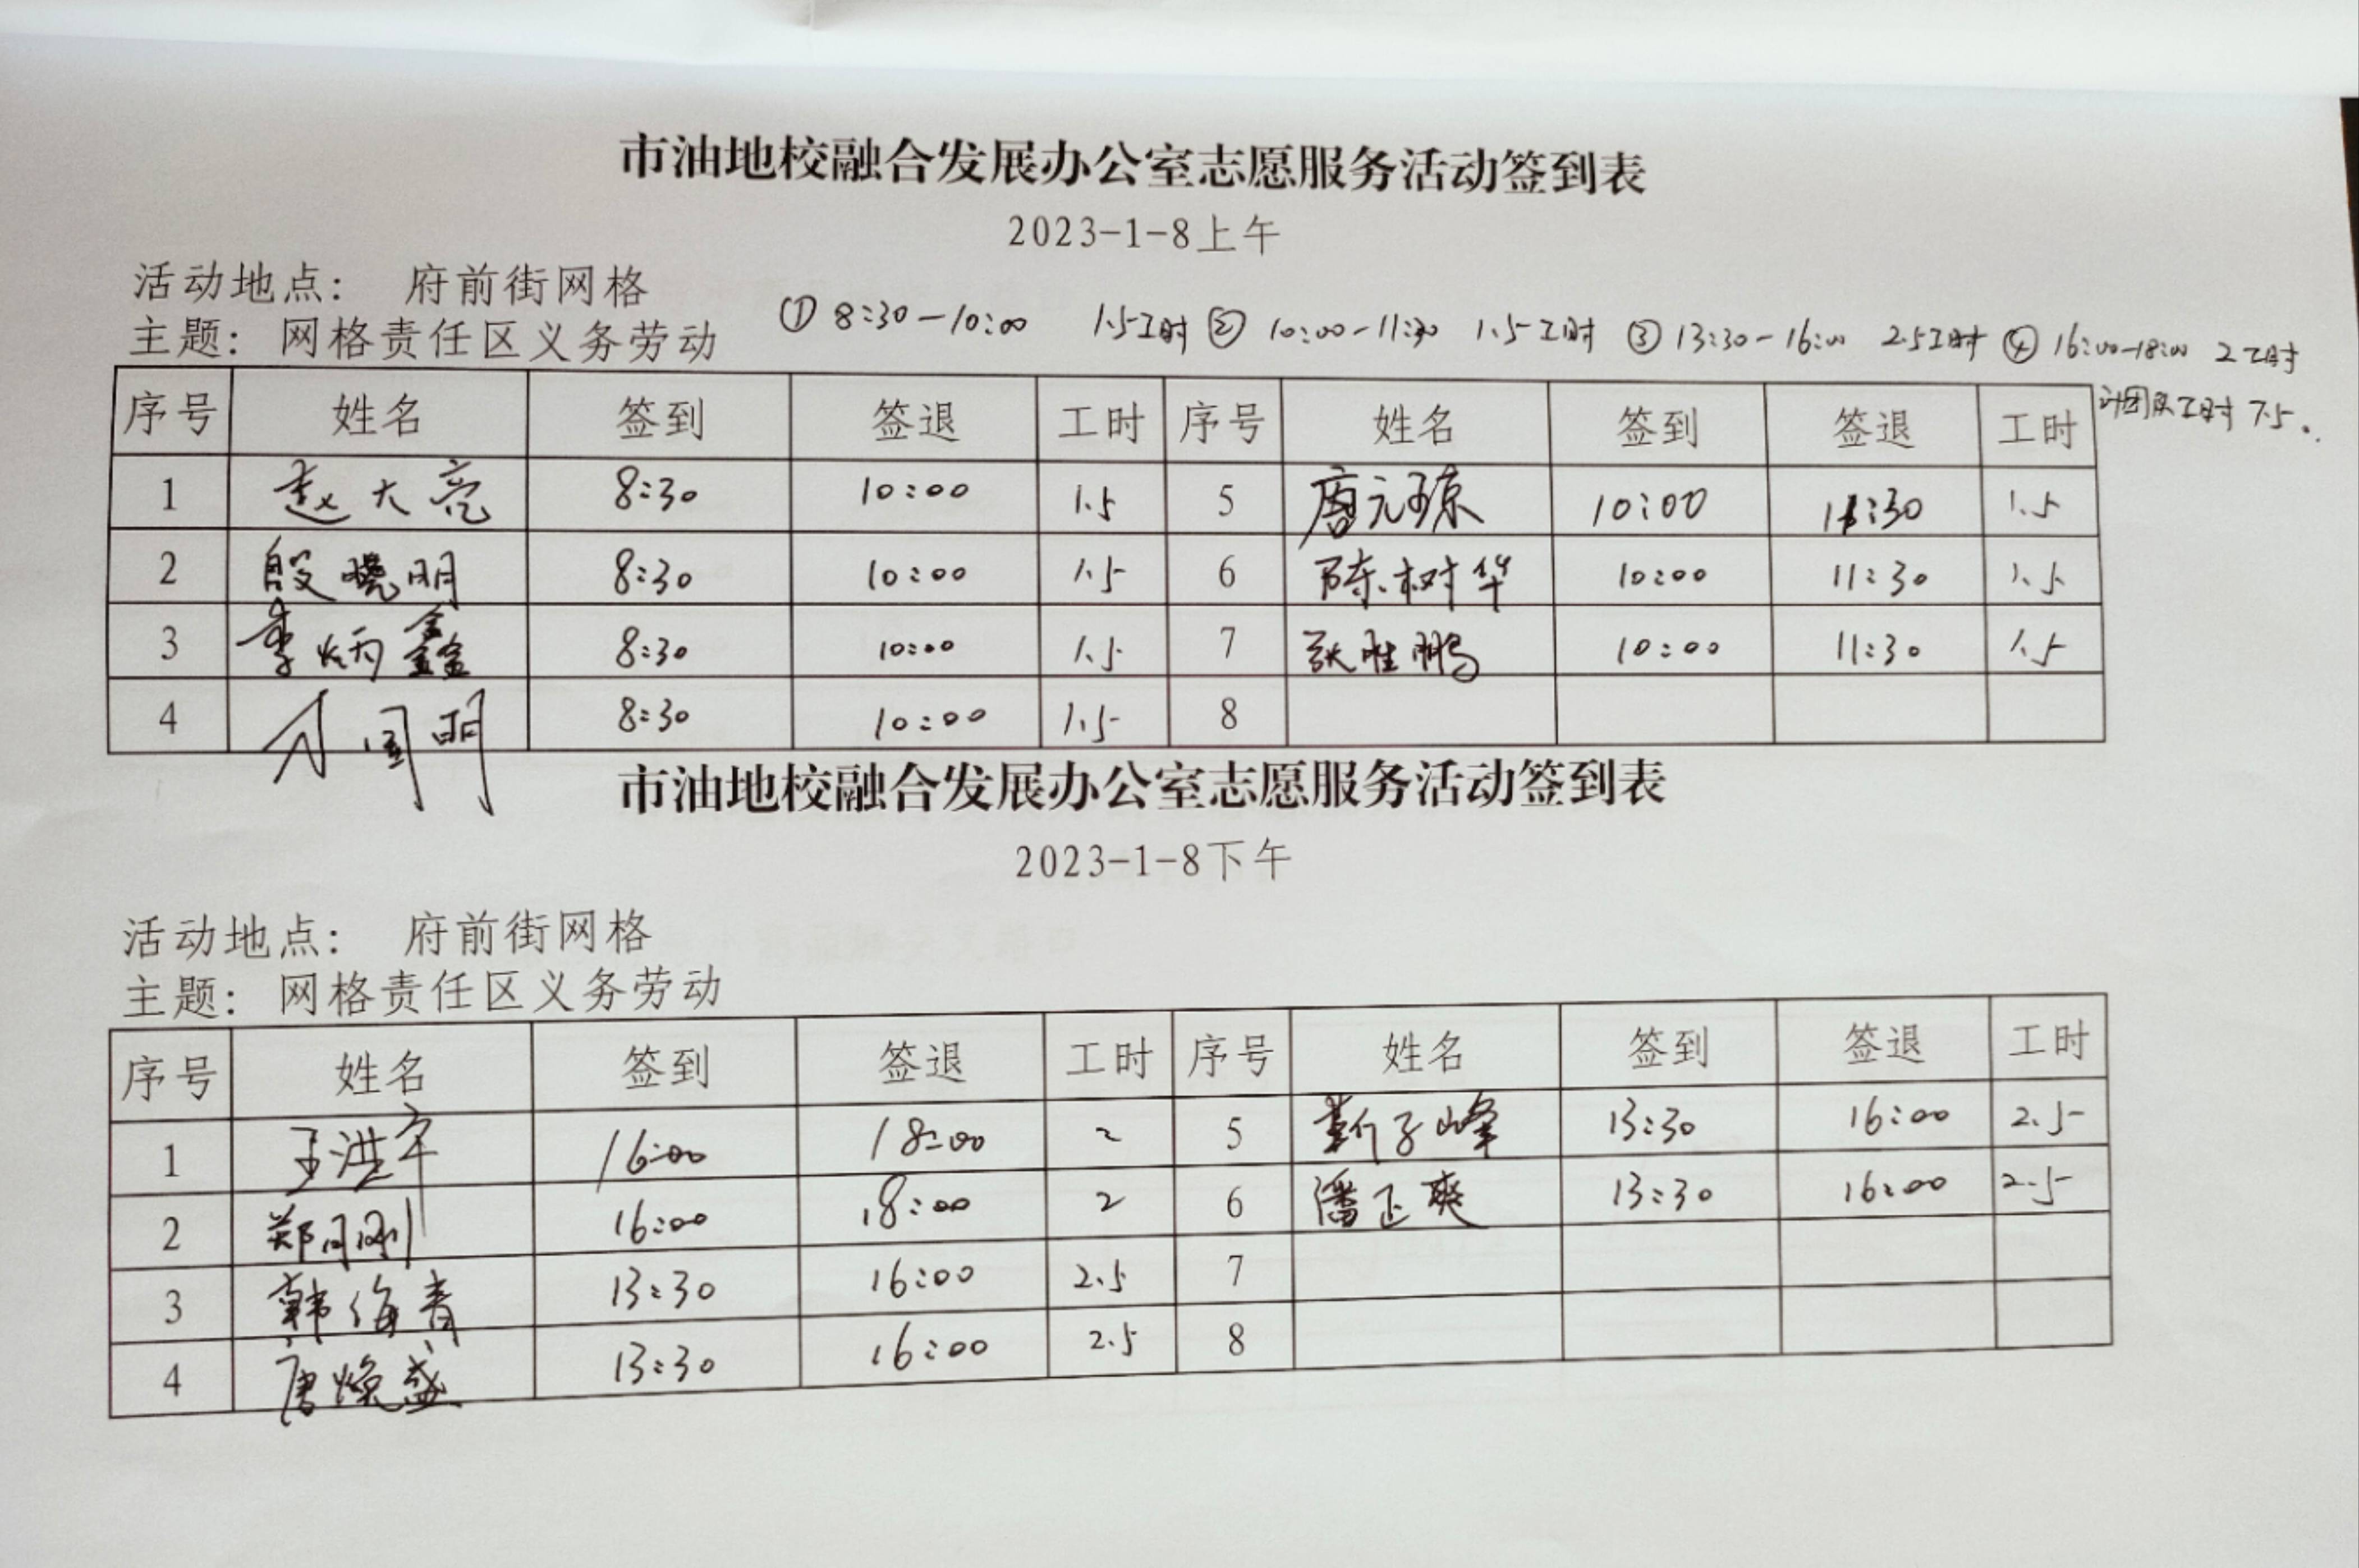 市油地校融合发展办公室志愿服务活动签到表
2023-1-8上午
活动地点： 府前街网格
主题：网格责任区义务劳动
① 8:30-10:00 1.5工时 ② 10:00-11:30 1.5工时 ③ 13:30-16:00 2.5工时 ④ 16:00-18:00 2工时
计团队工时 7.5。
序号 姓名 签到 签退 工时 序号 姓名 签到 签退 工时
1 赵大亮 8:30 10:00 1.5 5 唐元琼 10:00 11:30 1.5
2 殷晓明 8:30 10:00 1.5 6 陈树华 10:00 11:30 1.5
3 李炳鑫 8:30 10:00 1.5 7 耿胜鹏 10:00 11:30 1.5
4 国明 8:30 10:00 1.5 8
市油地校融合发展办公室志愿服务活动签到表
2023-1-8下午
活动地点： 府前街网格
主题：网格责任区义务劳动
序号 姓名 签到 签退 工时 序号 姓名 签到 签退 工时
1 王洪宇 16:00 18:00 2 5 靳子峰 13:30 16:00 2.5
2 郑刚 16:00 18:00 2 6 潘正爽 13:30 16:00 2.5
3 韩海青 13:30 16:00 2.5 7
4 唐焕盛 13:30 16:00 2.5 8